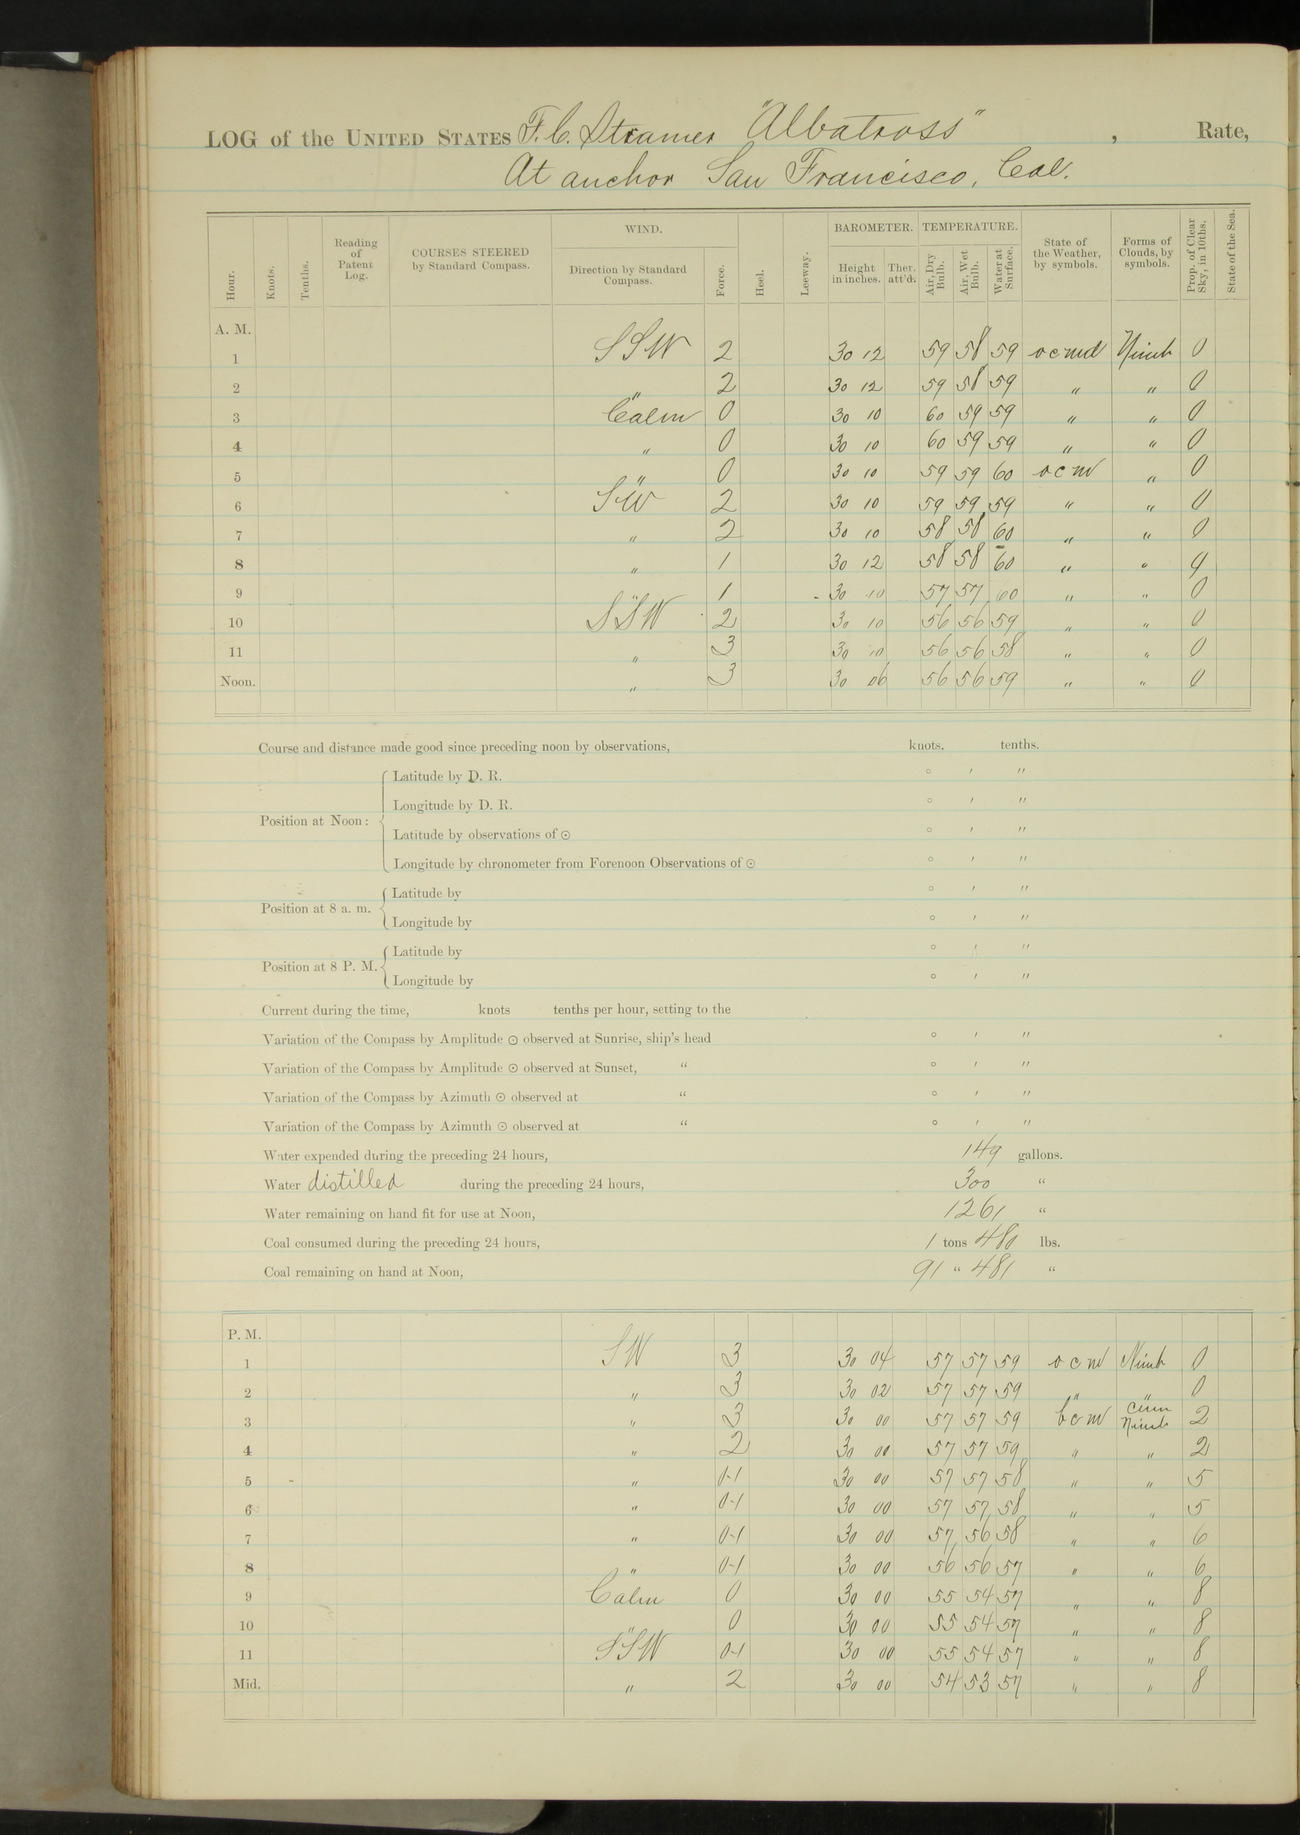 LOG of the UNITED STATES F.C. Steamer "Albatross", Rate,
At anchor San Francisco, Cal.
Hour. Knots. Tenths. Reading of Patent Log. COURSES STEERED by Standard Compass. WIND. Direction by Standard Compass. Force. Heel. Leeway. BAROMETER. Height in inches. Ther. att'd. TEMPERATURE. Air, Dry Bulb. Air, Wet Bulb. Water at Surface. State of the Weather, by symbols. Forms of Clouds, by symbols. Prop. of Clear Sky, in 10ths. State of the Sea.
A. M.
1 SSW 2 30 12 59 58 59 ocmd Nimb 0
2 " 2 30 12 59 58 59 " " 0
3 Calm 0 30 10 60 59 59 " " 0
4 " 0 30 10 60 59 59 " " 0
5 " 0 30 10 59 59 60 ocm " 0
6 SW 2 30 10 59 59 59 " " 0
7 " 2 30 10 58 58 60 " " 0
8 " 1 30 12 58 58 60 " "
9 " 1 30 10 57 57 60 " " 0
10 SSW 2 30 10 56 56 59 " " 0
11 " 3 30 10 56 56 58 " " 0
Noon. " 3 30 06 56 56 59 " " 0
Course and distance made good since preceding noon by observations, knots. tenths.
Position at Noon:
Latitude by D. R. ° ′ ″
Longitude by D. R. ° ′ ″
Latitude by observations of ☉ ° ′ ″
Longitude by chronometer from Forenoon Observations of ☉ ° ′ ″
Position at 8 a. m.
Latitude by ° ′ ″
Longitude by ° ′ ″
Position at 8 P. M.
Latitude by ° ′ ″
Longitude by ° ′ ″
Current during the time, knots tenths per hour, setting to the
Variation of the Compass by Amplitude ☉ observed at Sunrise, ship's head ° ′ ″
Variation of the Compass by Amplitude ☉ observed at Sunset, " ° ′ ″
Variation of the Compass by Azimuth ☉ observed at " ° ′ ″
Variation of the Compass by Azimuth ☉ observed at " ° ′ ″
Water expended during the preceding 24 hours, 149 gallons.
Water distilled during the preceding 24 hours, 300 "
Water remaining on hand fit for use at Noon, 1261 "
Coal consumed during the preceding 24 hours, 1 tons 480 lbs.
Coal remaining on hand at Noon, 91 " 481 "
P. M.
1 SW 3 30 04 57 57 59 ocm Nimb 0
2 " 3 30 02 57 57 59 " " 0
3 " 3 30 00 57 57 59 bcm Cum Nimb 2
4 " 2 30 00 57 57 59 " " 2
5 " 0-1 30 00 57 57 58 " " 5
6 " 0-1 30 00 57 57 58 " " 5
7 " 0-1 30 00 57 56 58 " " 6
8 " 0-1 30 00 56 56 57 " " 6
9 Calm 0 30 00 55 54 57 " " 8
10 " 0 30 00 55 54 57 " " 8
11 SSW 0-1 30 00 55 54 57 " " 8
Mid. " 2 30 00 54 53 57 " " 8